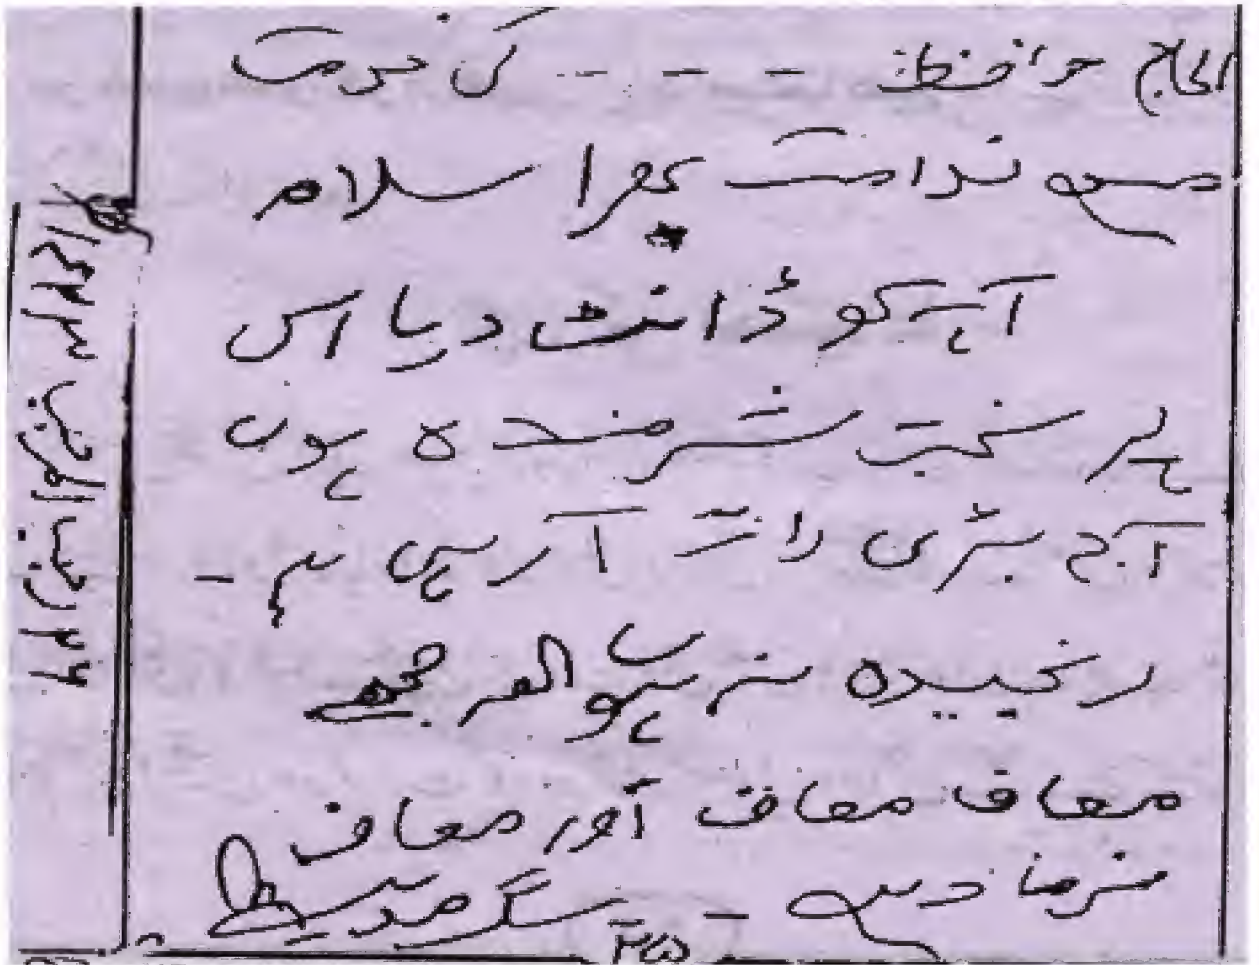 الحاج حافظ - - - - کی خدمت
مع ندامت بھرا سلام
آپ کو ڈانٹ دیا اس
پر سخت شرمندہ ہوں
آج بڑی رات آ رہی ہے -
رنجیدہ نہ ہوں اور مجھے
معاف معاف اور معاف
فرما دیں - سگ مدینہ